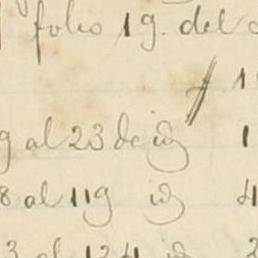 folio 19. del
1
9 al 23 de id 1
8 al 119 id 4
3 al 124 id 2